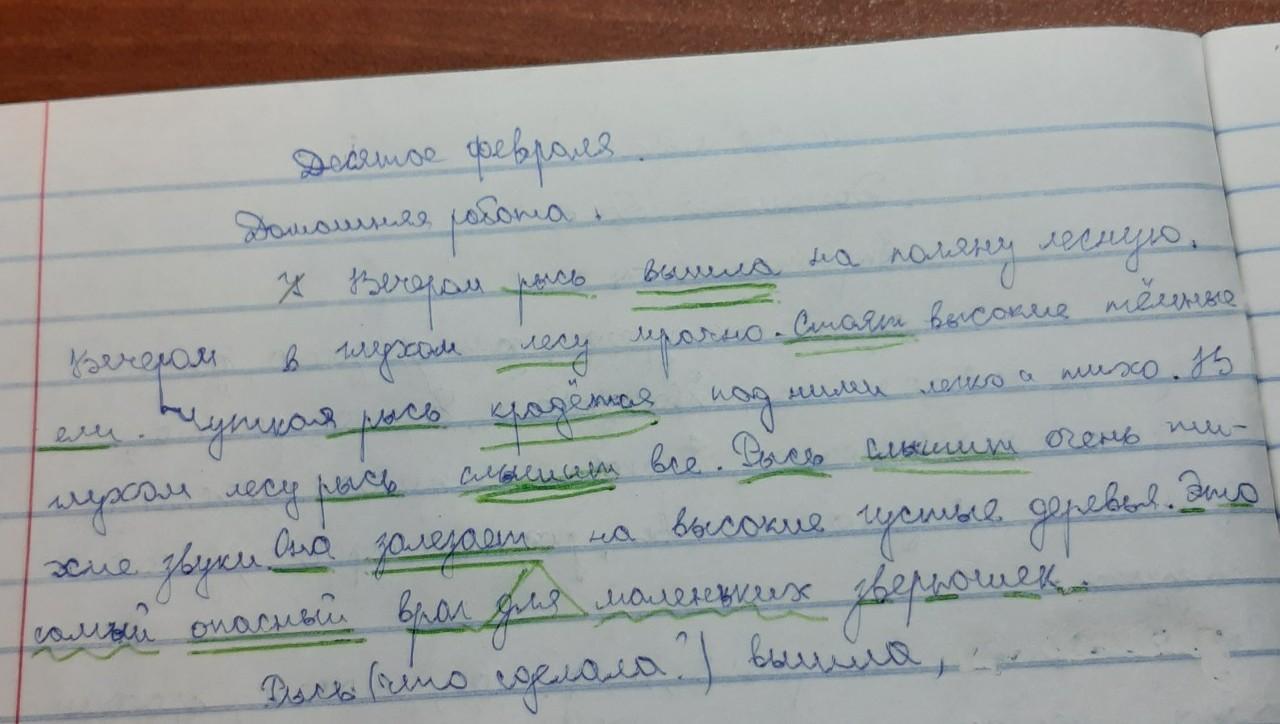 Десятое февраля.
Домашняя работа.
Вечером рысь вышла на поляну лесную.
Вечером в глухом лесу мрачно. Стоят высокие тёмные
ели. Чуткая рысь крадётся под ними легко и тихо. В
глухом лесу рысь слышит все. Рысь слышит очень ти-
хие звуки. Она залезает на высокие густые деревья. Это
самый опасный враг для маленьких зверюшек.
Рысь (что сделала?) вышла,